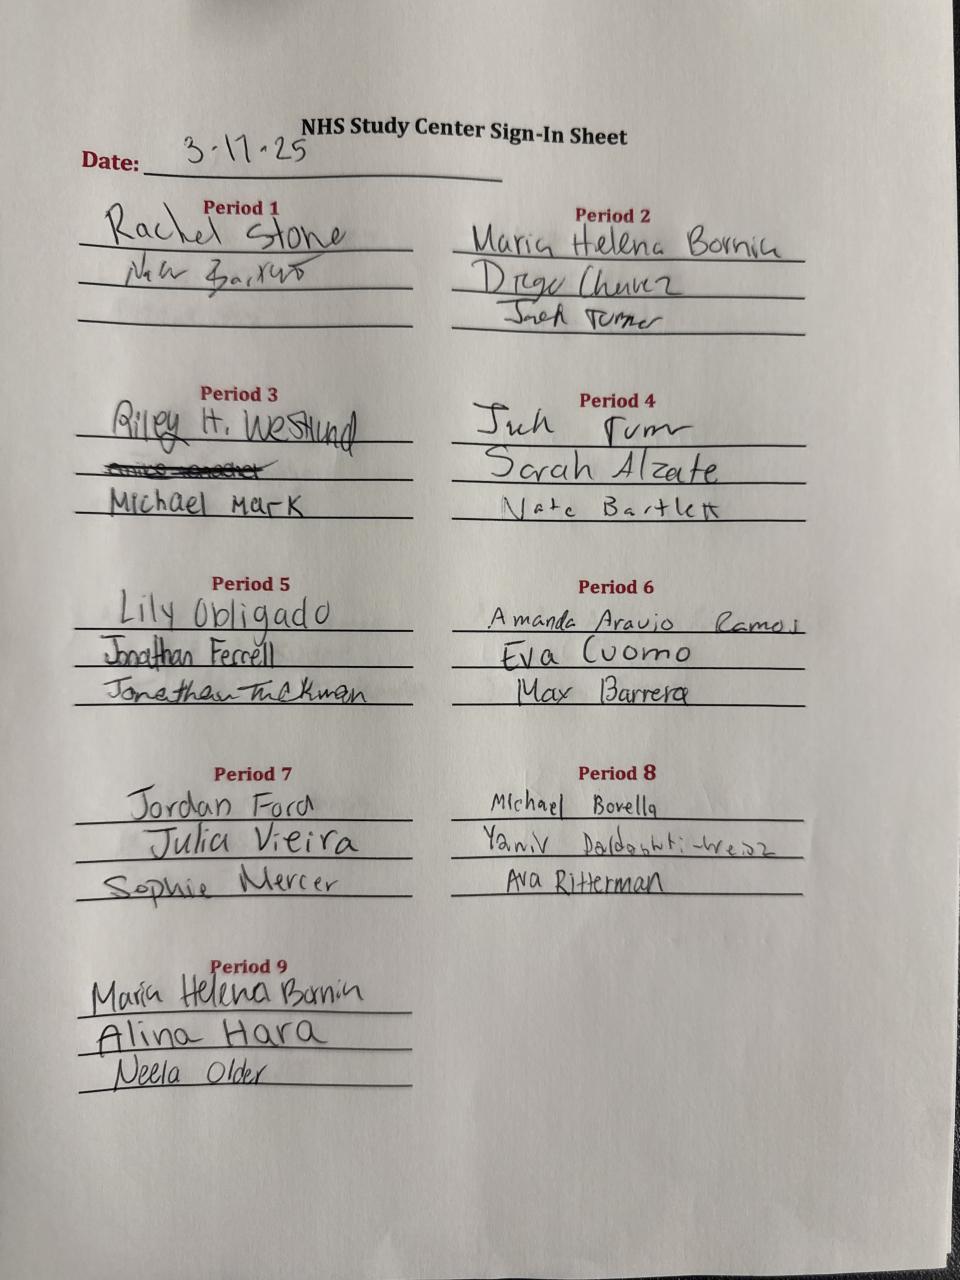 NHS Study Center Sign-In Sheet
Date: 3-17-25
Period 1
Rachel Stone
Period 2
Maria Helena Bornia
Diego Chavez
Jack Turner
Period 3
Riley H. Westlund
Michael Mark
Period 4
Sarah Alzate
Nate Bartlett
Period 5
Lily Obligado
Jonathan Ferrell
Jonathan Tuckman
Period 6
Amanda Araujo Ramos
Eva Cuomo
Max Barrera
Period 7
Jordan Ford
Julia Vieira
Sophie Mercer
Period 8
Michael Borella
Yaniv
Ava Ritterman
Period 9
Maria Helena Bornia
Alina Hara
Neela Older